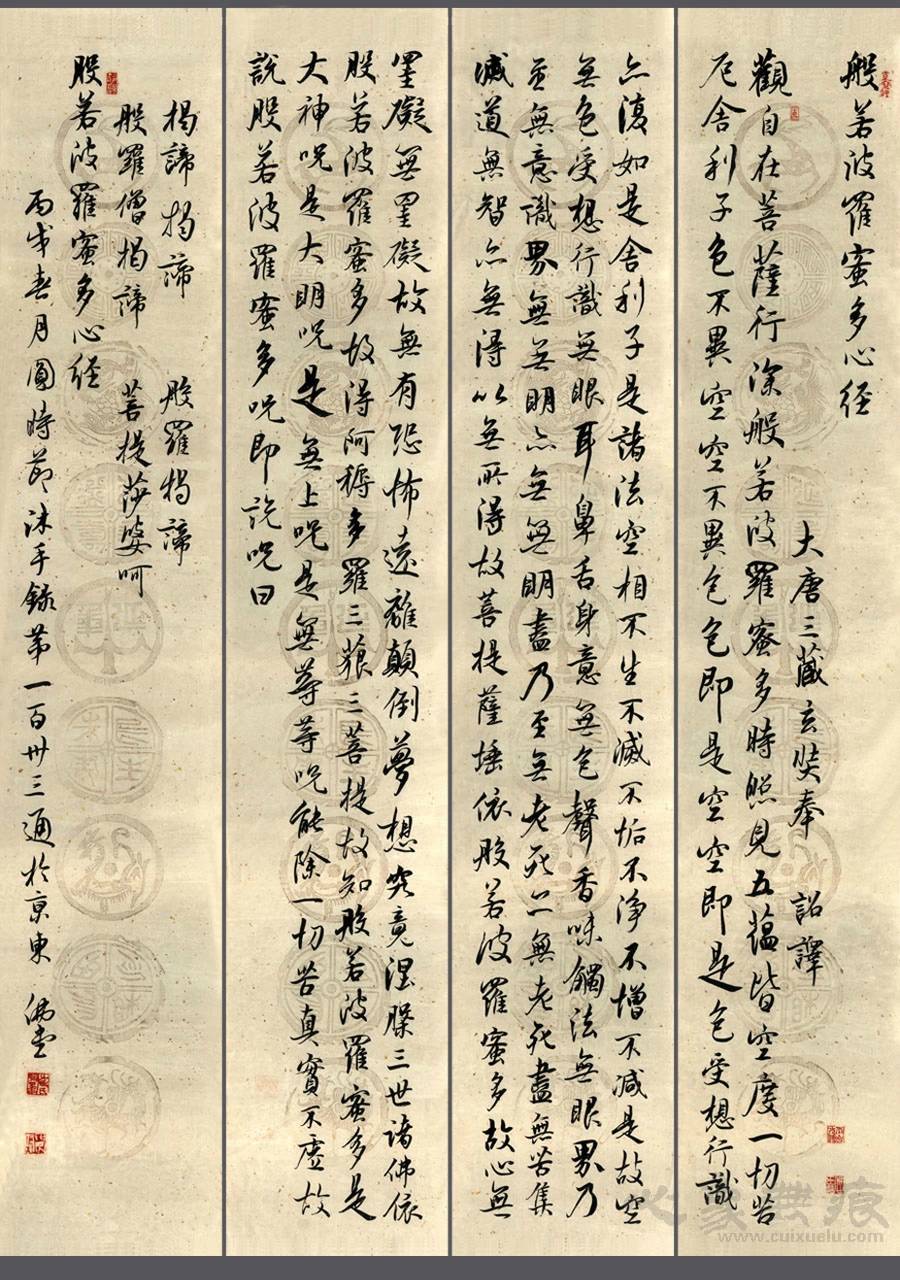 般若波羅蜜多心经
大唐三藏玄奘奉 詔譯
觀自在菩薩行深般若波羅蜜多時照見五蕴皆空度一切苦
厄舍利子色不異空空不異色色即是空空即是色受想行識
亦復如是舍利子是諸法空相不生不滅不垢不净不增不减是故空
無色受想行識無眼耳鼻舌身意無色聲香味觸法無眼界乃
至無意識界無無明亦無無明盡乃至無老死亦無老死盡無苦集
滅道無智亦無得以無所得故菩提薩埵依般若波羅蜜多故心無
罣礙無罣礙故無有恐怖遠離顛倒夢想究竟涅槃三世諸佛依
般若波羅蜜多故得阿耨多羅三藐三菩提故知般若波羅蜜多是
大神呪是大明呪是無上呪是無等等呪能除一切苦真實不虚故
說般若波羅蜜多呪即説呪曰
揭諦揭諦 般羅揭諦
般羅僧揭諦 菩提莎婆呵
般若波羅蜜多心经
丙戌春月圓時節沐手錄第一百卅三通於京東 佛堂
無痕
www.cuixuelu.com